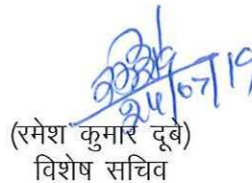 24/07/19
(रमेश कुमार दूबे)
विशेष सचिव